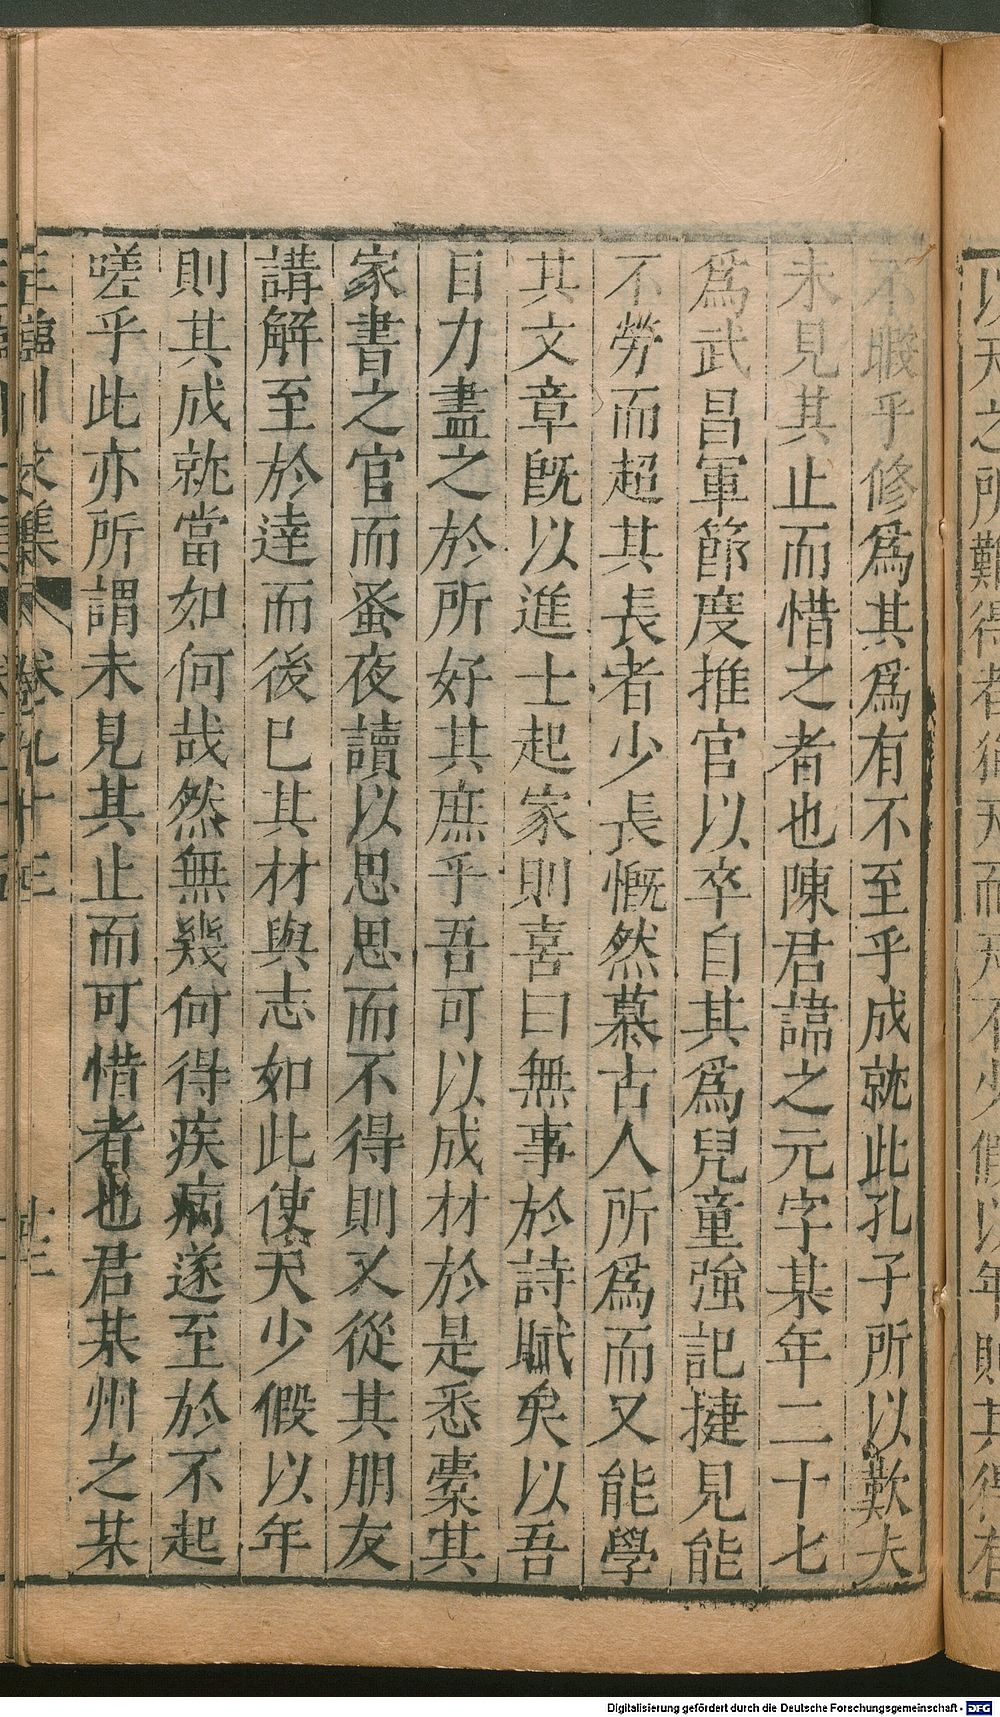 以天之所難得者猶天而天不少假以年則其得有
不暇乎修爲其爲有不至乎成就此孔子所以歎夫
未見其止而惜之者也陳君諱之元字某年二十七
爲武昌軍節度推官以卒自其爲兒童強記捷見能
不勞而超其長者少長慨然慕古人所爲而又能學
其文章旣以進士起家則喜曰無事於詩賦矣以吾
目力盡之於所好其庶乎吾可以成材於是悉橐其
家書之官而蚤夜讀以思思而不得則又從其朋友
講解至於達而後已其材與志如此使天少假以年
則其成就當如何哉然無幾何得疾病遂至於不起
嗟乎此亦所謂未見其止而可惜者也君某州之某
王臨川文集 卷九十三
Digitalisierung gefördert durch die Deutsche Forschungsgemeinschaft - DFG